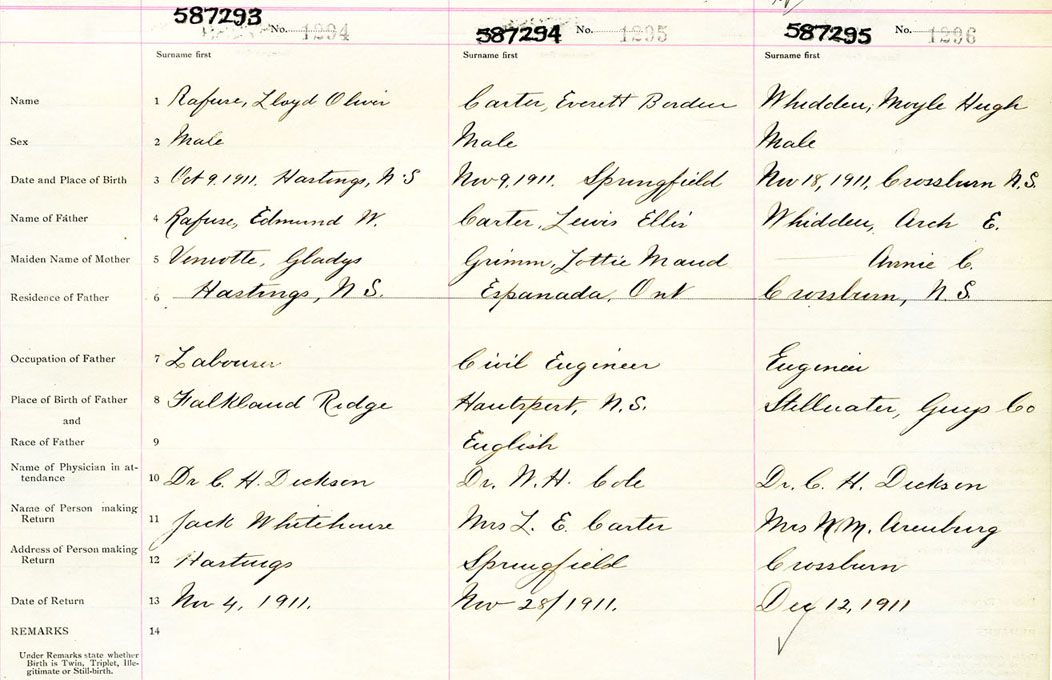 587293 No. 1294 587294 No. 1295 587295 No. 1296
Surname first Surname first Surname first
Name 1 Rafuse, Lloyd Oliver Carter, Everett Borden Whidden, Moyle Hugh
Sex 2 Male Male Male
Date and Place of Birth 3 Oct 9. 1911. Hastings, N.S Nov 9, 1911. Springfield Nov 18, 1911, Crossburn N.S.
Name of Father 4 Rafuse, Edmund W. Carter, Lewis Ellis Whidden, Arch E.
Maiden Name of Mother 5 Gladys Grimm, Lottie Maud Annie C.
Residence of Father 6 Hastings, N S. Espanada, Ont Crossburn, N. S.
Occupation of Father 7 Labourer Civil Engineer Engineer
Place of Birth of Father 8 Falkland Ridge Hantsport, N.S. Stillwater, Guys Co
and
Race of Father 9 English
Name of Physician in at-
tendance 10 Dr C. H. Dickson Dr. W. H. Cole Dr. C. H. Dickson
Name of Person making
Return 11 Jack Whitehouse Mrs L. E. Carter Mrs M. Arenburg
Address of Person making
Return 12 Hastings Springfield Crossburn
Date of Return 13 Nov 4, 1911. Nov 28/1911. Dec 12, 1911
REMARKS 14
Under Remarks state whether
Birth is Twin, Triplet, Ille-
gitimate or Still-birth.